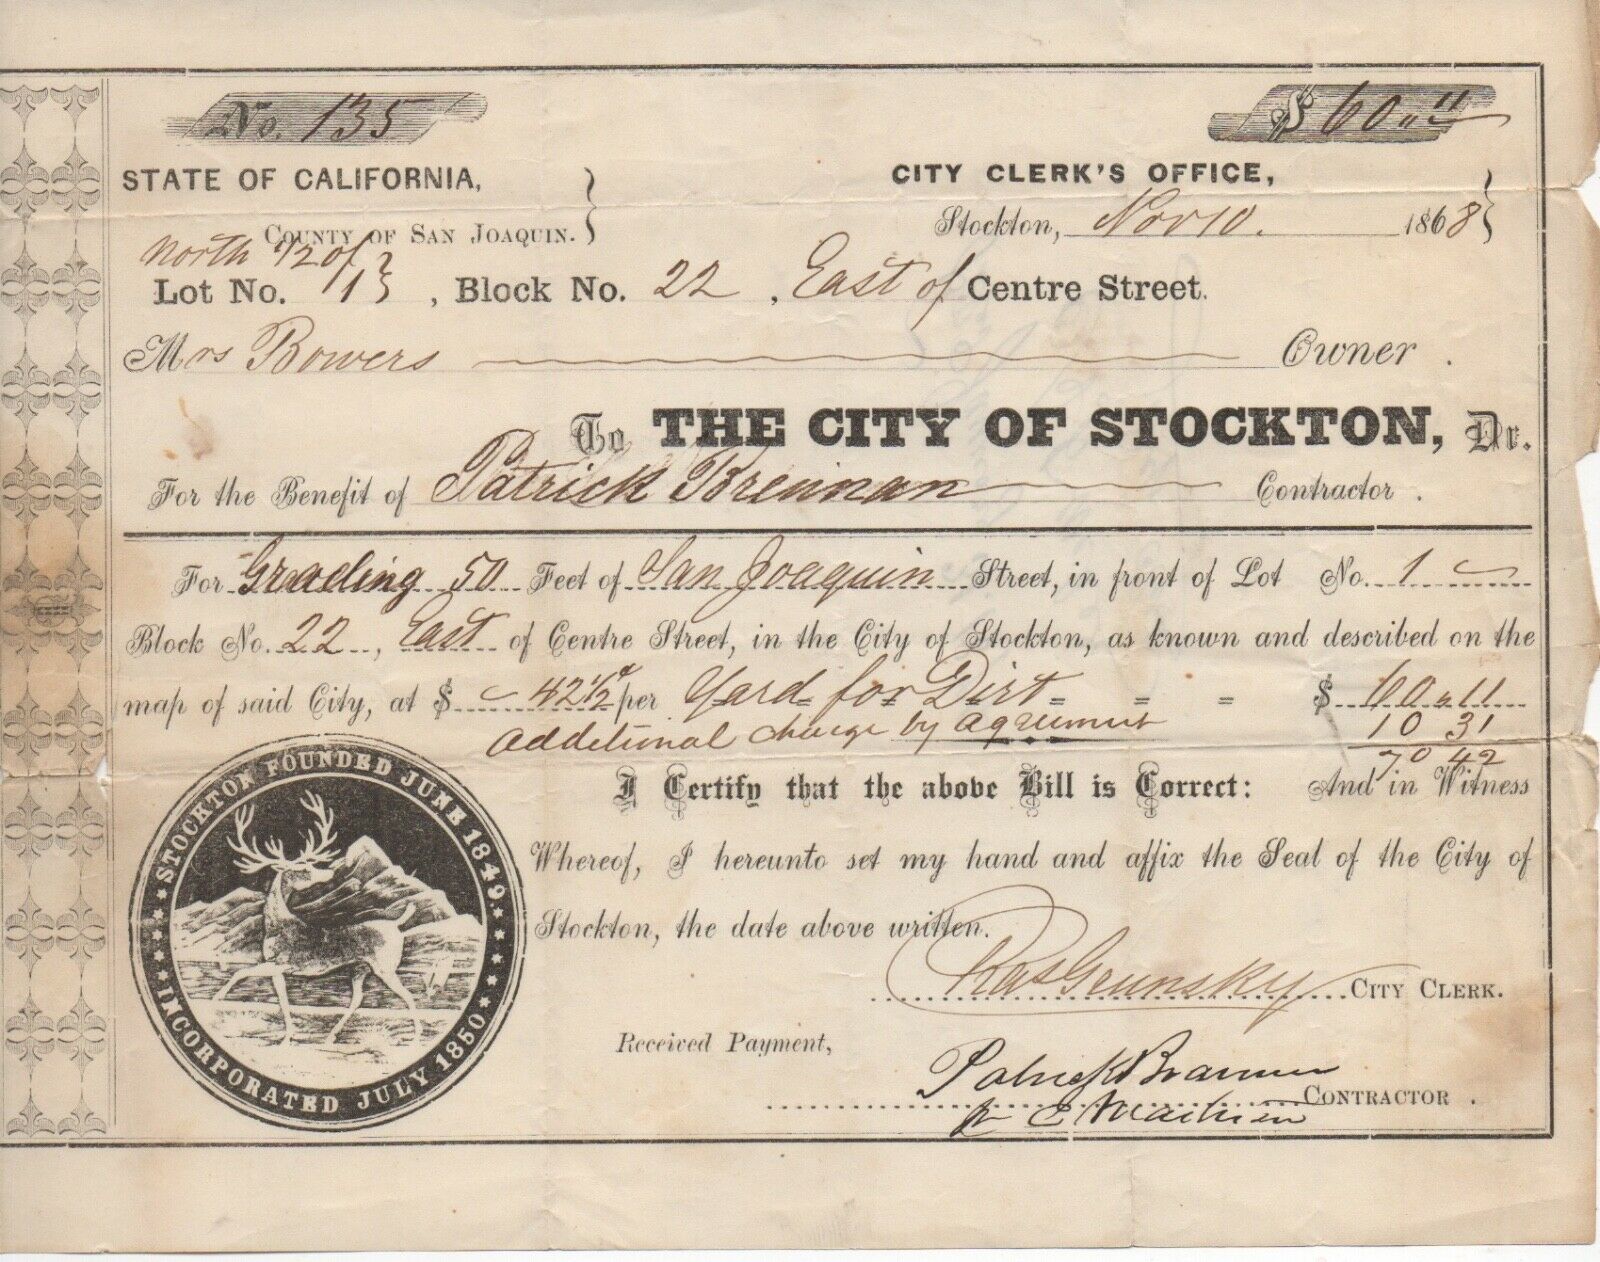 No. 135
$ 60 „ 11
STATE OF CALIFORNIA,
COUNTY OF SAN JOAQUIN.
CITY CLERK'S OFFICE,
Stockton, Nov 10. 1868
North 1/2 of
Lot No. 1 , Block No. 22 , East of Centre Street.
Mrs Bowers Owner .
To THE CITY OF STOCKTON, Dr.
For the Benefit of Patrick Brennan Contractor .
For Grading 50 Feet of San Joaquin Street, in front of Lot No. 1
Block No. 22 , East of Centre Street, in the City of Stockton, as known and described on the
map of said City, at $ 42 1/2 per Yard for Dirt = = = $ 60 „ 11
Additional charge by agreement 10 31
70 42
I Certify that the above Bill is Correct: And in Witness
Whereof, I hereunto set my hand and affix the Seal of the City of
Stockton, the date above written.
Chas Grunsky CITY CLERK.
Received Payment,
Patrick Brannan
CONTRACTOR .
STOCKTON FOUNDED JUNE 1849.
INCORPORATED JULY 1850